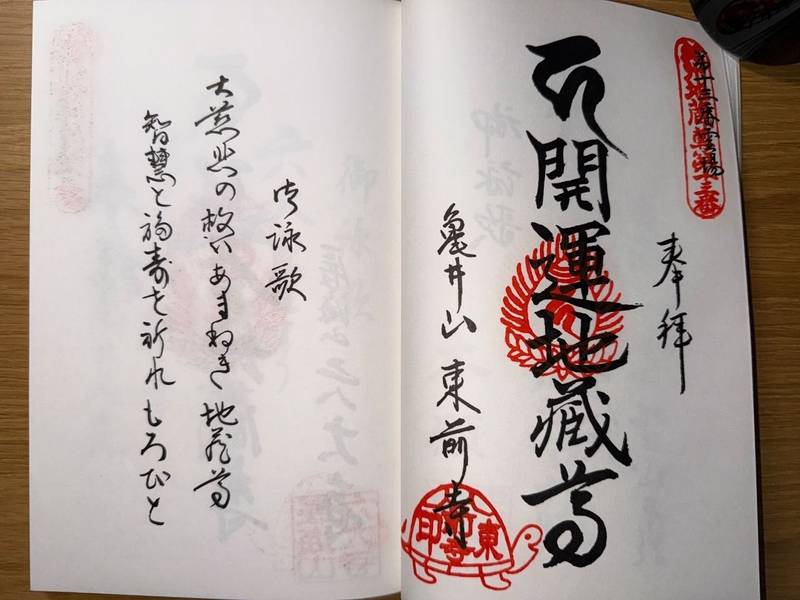 第十三番霊場
地蔵尊第十三番
奉拝
開運地蔵尊
亀井山 東前寺
東前寺印
御詠歌
大慈悲の救いあまねき 地蔵尊
智慧と福寿を祈れ もろびと